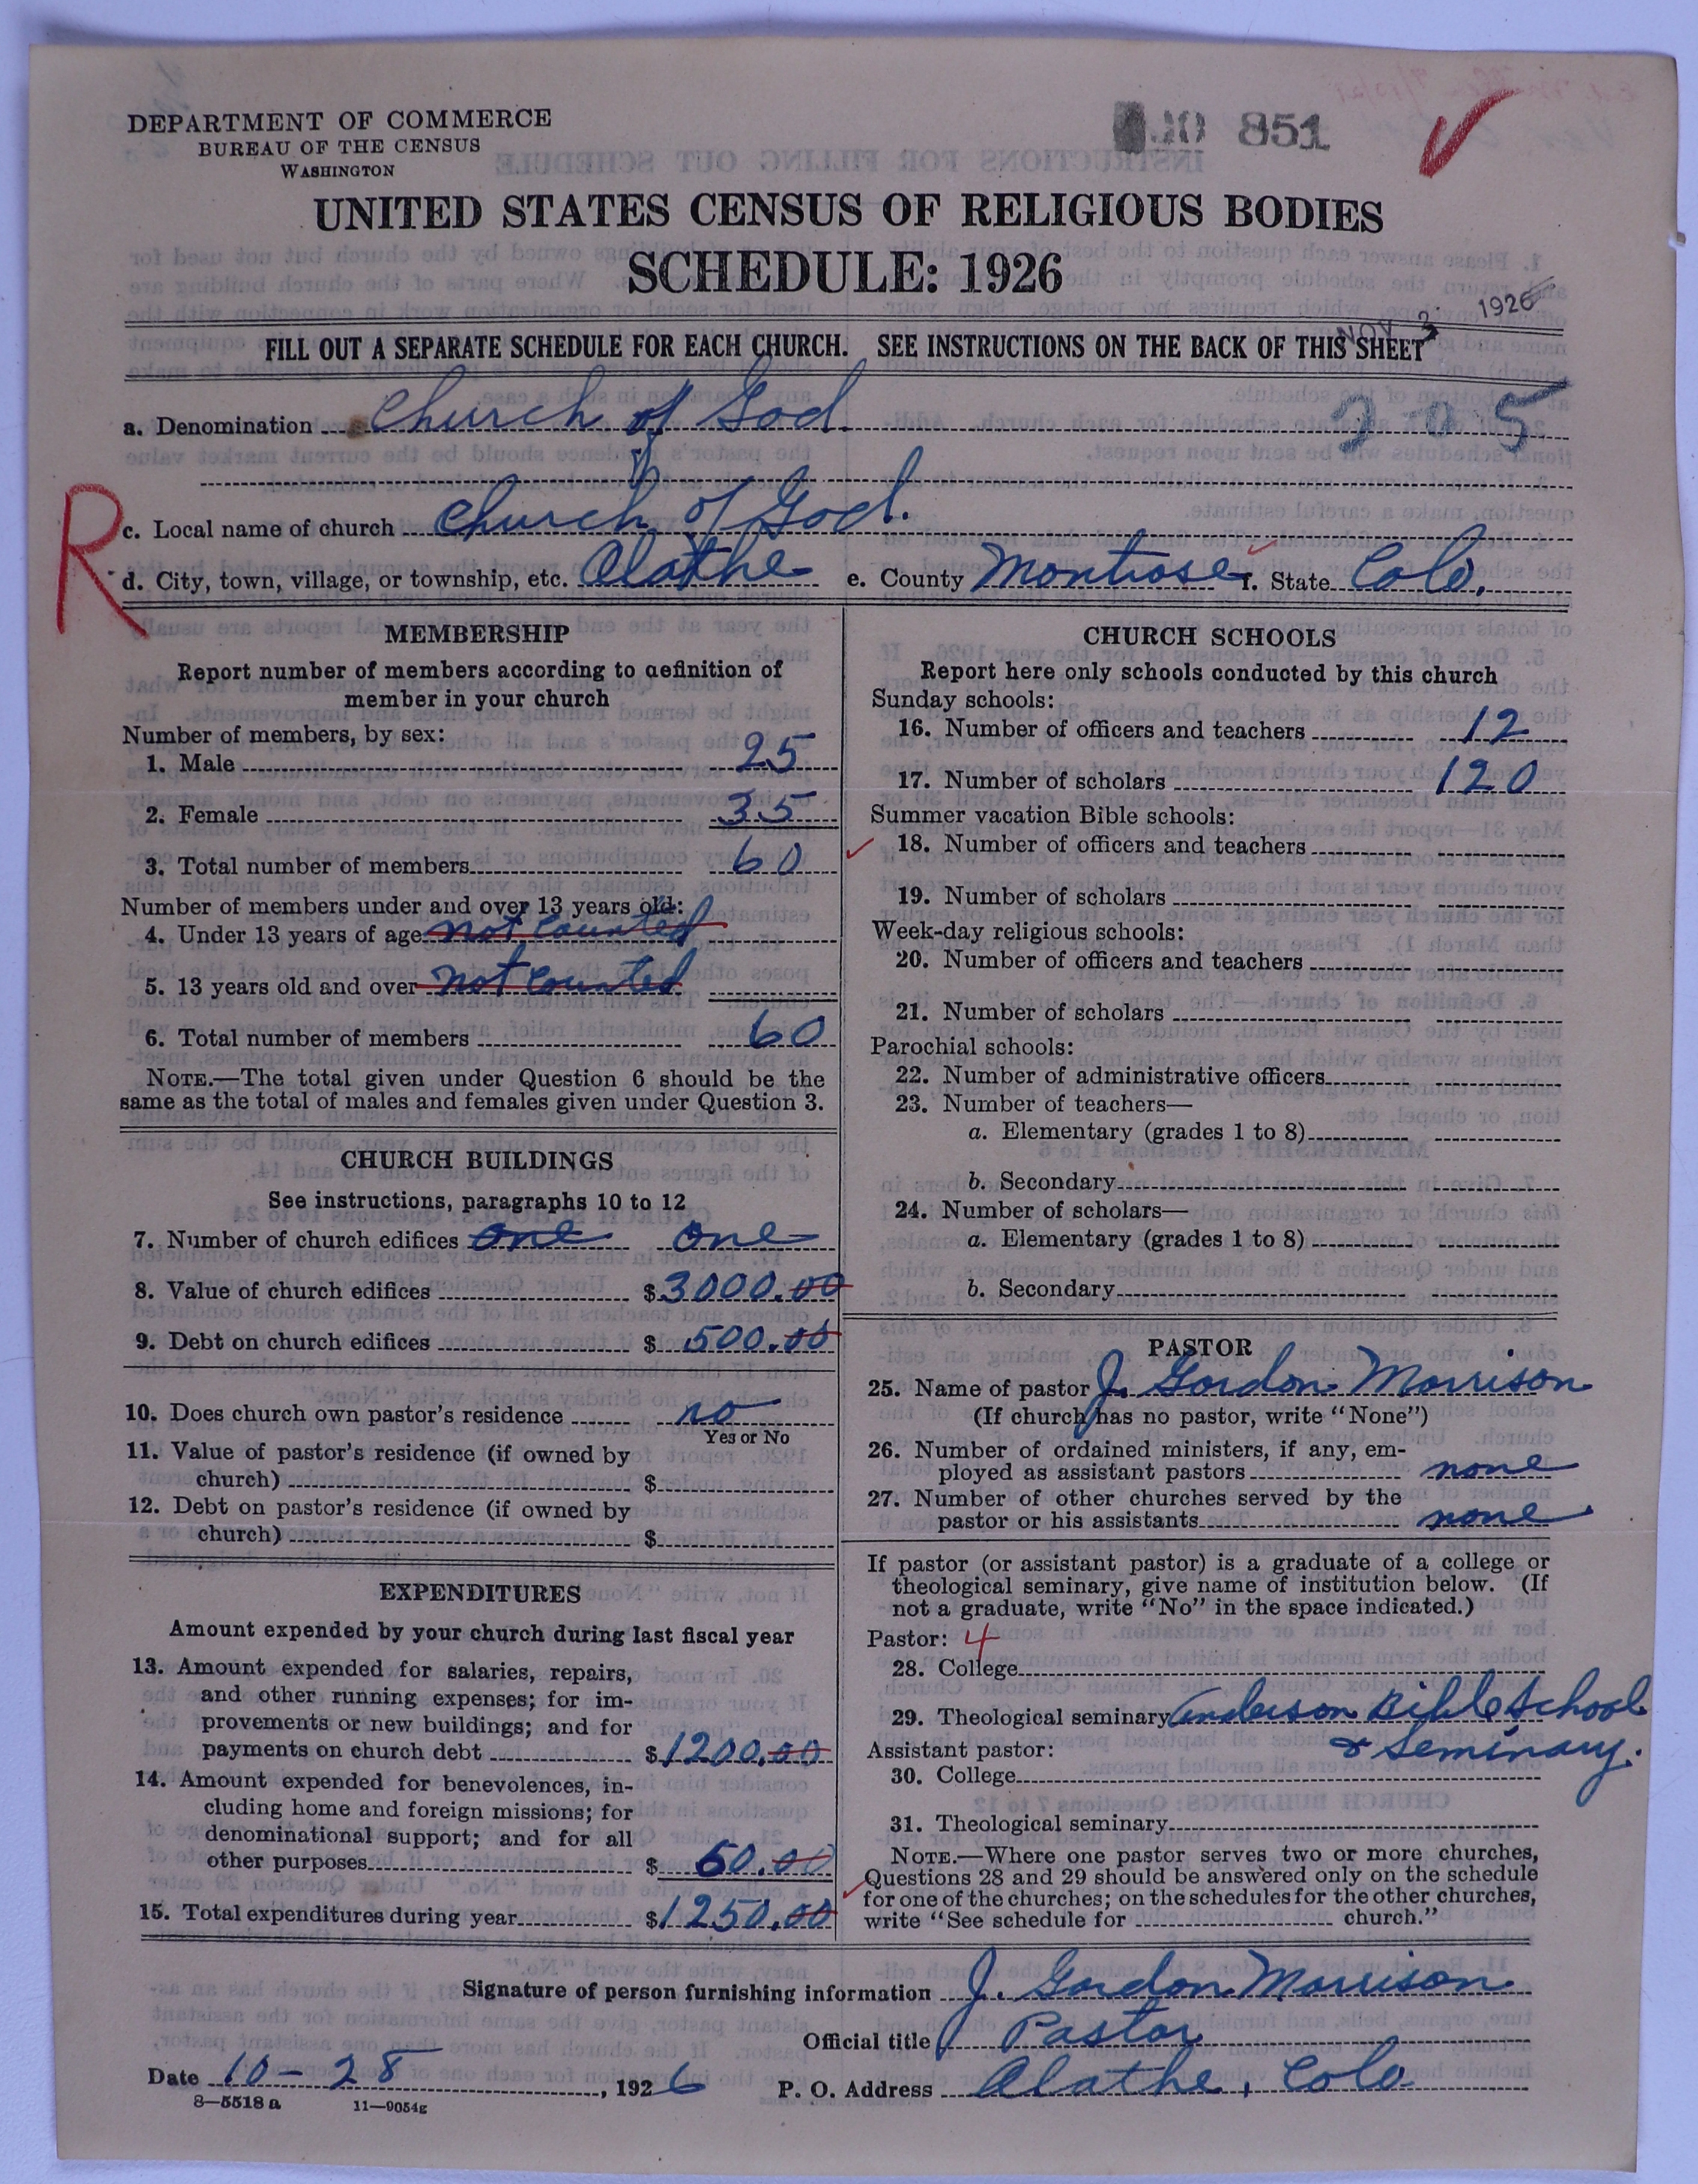 DEPARTMENT OF COMMERCE
BUREAU OF THE CENSUS
WASHINGTON
10 851
UNITED STATES CENSUS OF RELIGIOUS BODIES
SCHEDULE: 1926
NOV 3 1926
FILL OUT A SEPARATE SCHEDULE FOR EACH CHURCH. SEE INSTRUCTIONS ON THE BACK OF THIS SHEET
a. Denomination Church of God
2-0-5
R
c. Local name of church Church of God.
d. City, town, village, or township, etc. Olathe e. County Montrose f. State Colo.
MEMBERSHIP
Report number of members according to definition of
member in your church
Number of members, by sex:
1. Male 25
2. Female 35
3. Total number of members 60
Number of members under and over 13 years old:
4. Under 13 years of age not counted
5. 13 years old and over not counted
6. Total number of members 60
NOTE.—The total given under Question 6 should be the
same as the total of males and females given under Question 3.
CHURCH BUILDINGS
See instructions, paragraphs 10 to 12
7. Number of church edifices one one
8. Value of church edifices $3000.00
9. Debt on church edifices $ 500.00
10. Does church own pastor's residence no
Yes or No
11. Value of pastor's residence (if owned by
church) $
12. Debt on pastor's residence (if owned by
church) $
EXPENDITURES
Amount expended by your church during last fiscal year
13. Amount expended for salaries, repairs,
and other running expenses; for im-
provements or new buildings; and for
payments on church debt $1200.00
14. Amount expended for benevolences, in-
cluding home and foreign missions; for
denominational support; and for all
other purposes $ 50.00
15. Total expenditures during year $1250.00
CHURCH SCHOOLS
Report here only schools conducted by this church
Sunday schools:
16. Number of officers and teachers 12
17. Number of scholars 120
Summer vacation Bible schools:
18. Number of officers and teachers
19. Number of scholars
Week-day religious schools:
20. Number of officers and teachers
21. Number of scholars
Parochial schools:
22. Number of administrative officers
23. Number of teachers—
a. Elementary (grades 1 to 8)
b. Secondary
24. Number of scholars—
a. Elementary (grades 1 to 8)
b. Secondary
PASTOR
25. Name of pastor J. Gordon Morrison
(If church has no pastor, write "None")
26. Number of ordained ministers, if any, em-
ployed as assistant pastors none
27. Number of other churches served by the
pastor or his assistants none
If pastor (or assistant pastor) is a graduate of a college or
theological seminary, give name of institution below. (If
not a graduate, write "No" in the space indicated.)
Pastor: 4
28. College
29. Theological seminary Anderson Bible School
& Seminary.
Assistant pastor:
30. College
31. Theological seminary
NOTE.—Where one pastor serves two or more churches,
Questions 28 and 29 should be answered only on the schedule
for one of the churches; on the schedules for the other churches,
write "See schedule for church."
Signature of person furnishing information J. Gordon Morrison
Official title Pastor
Date 10-28, 1926 P. O. Address Olathe, Colo
8—5518 a 11—9054g